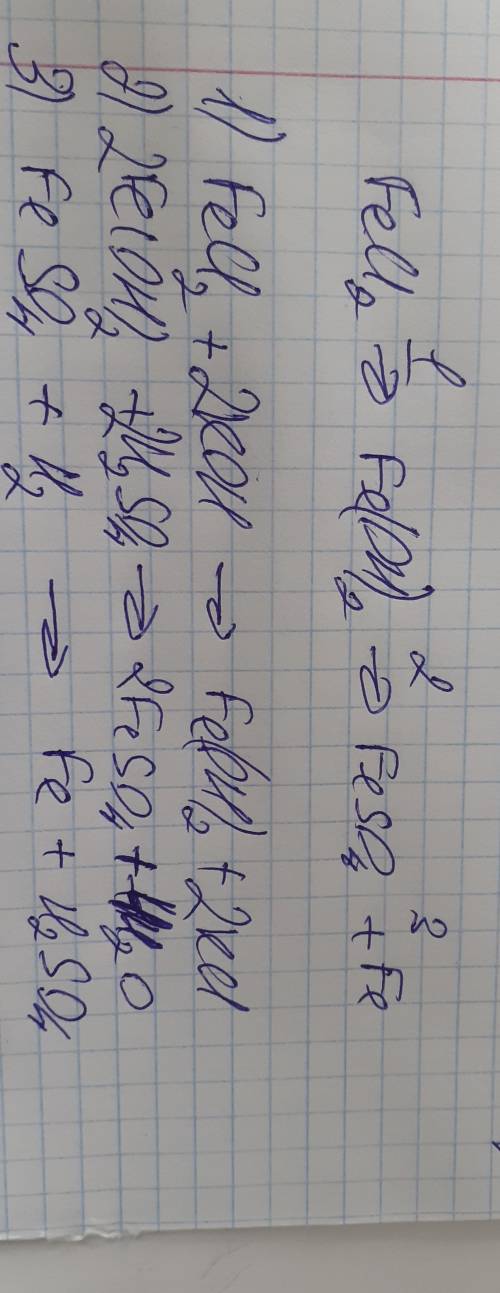 FeCl₂ 1→ Fe(OH)₂ 2→ FeSO₄ 3+ Fe
1) FeCl₂ + 2KOH → Fe(OH)₂ + 2KCl
2) 2Fe(OH)₂ + 2H₂SO₄ → 2FeSO₄ + H₂O
3) FeSO₄ + H₂ → Fe + H₂SO₄